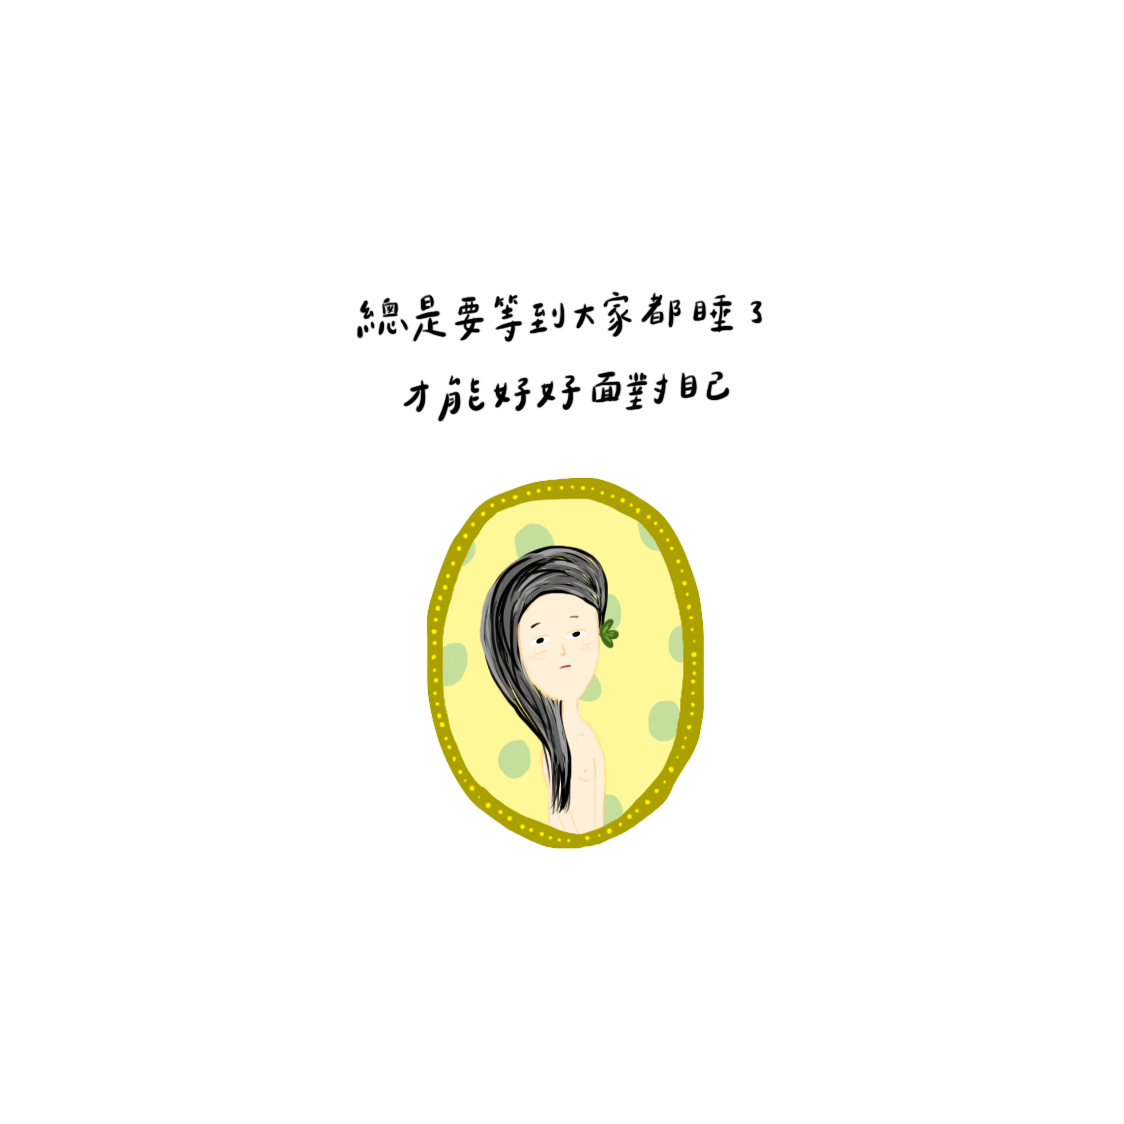 總是要等到大家都睡了
才能好好面對自己